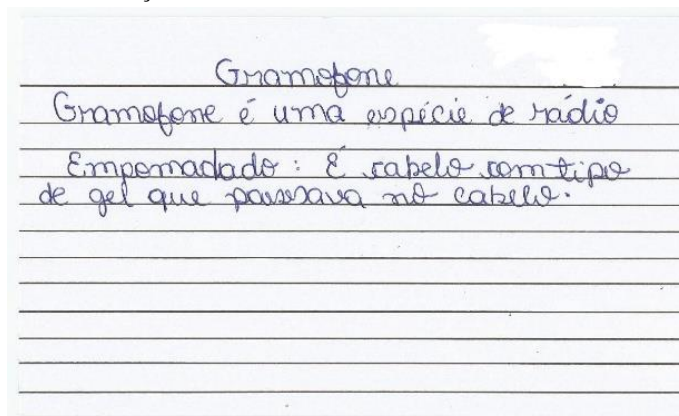 Gramofone
Gramofone é uma espécie de rádio
Empomadado: É cabelo com tipo
de gel que passava no cabelo.